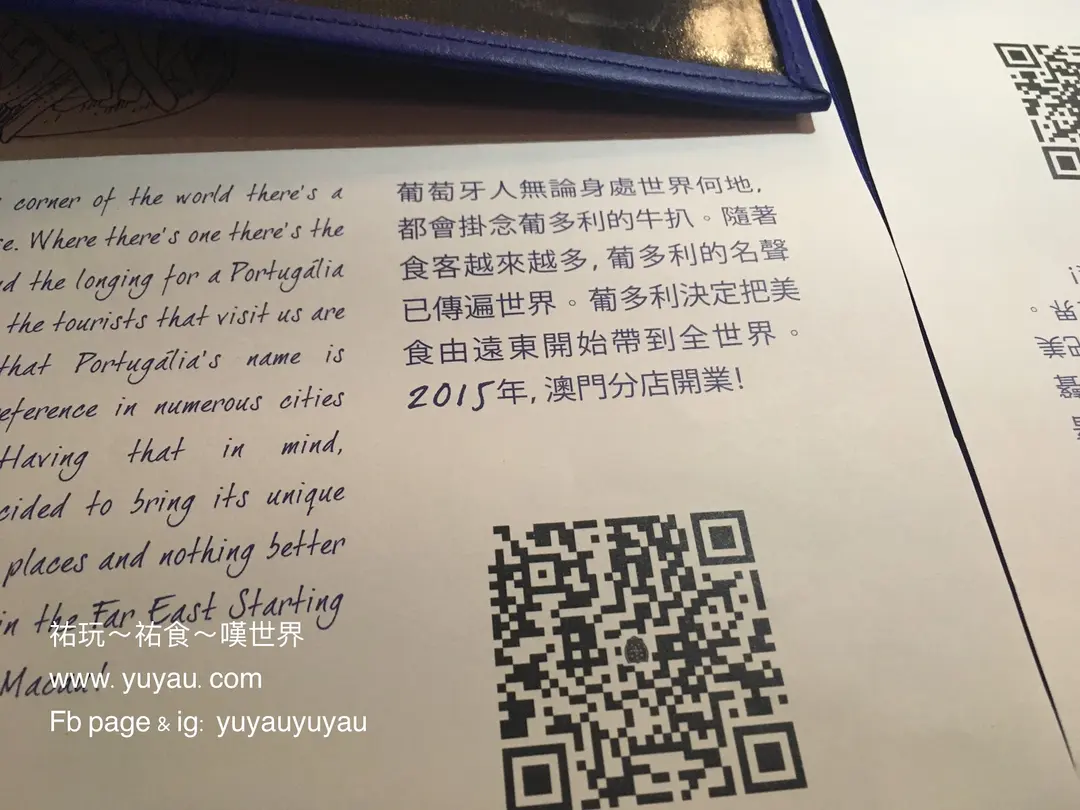 corner of the world there's a
se. Where there's one there's the
nd the longing for a Portugália
the tourists that visit us are
that Portugália's name is
eference in numerous cities
Having that in mind,
cided to bring its unique
places and nothing better
in the Far East Starting
Macau!
葡萄牙人無論身處世界何地,
都會掛念葡多利的牛扒。隨著
食客越來越多, 葡多利的名聲
已傳遍世界。葡多利決定把美
食由遠東開始帶到全世界。
2015年, 澳門分店開業!
祐玩～祐食～嘆世界
www. yuyau. com
Fb page & ig: yuyauyuyau